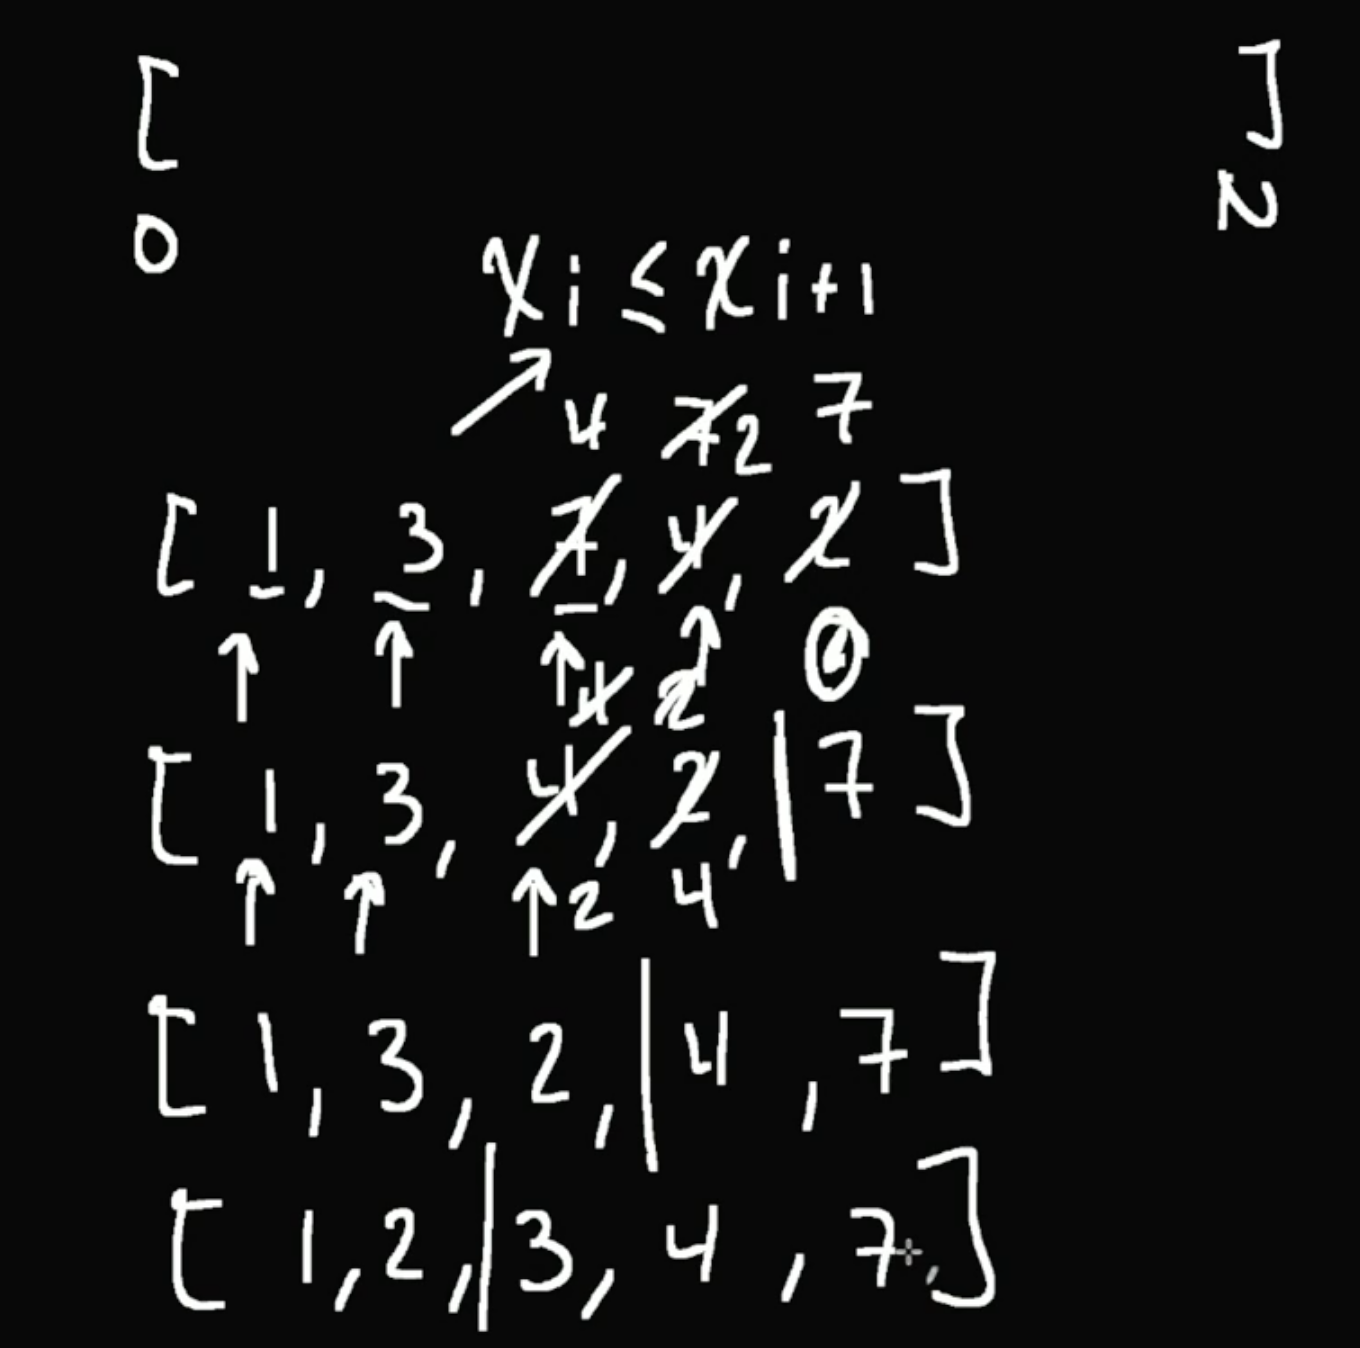 [ ]
0 2
xi ≤ xi+1
4 7 2 7
[ 1, 3, 7, 4, 2 ]
4 2
[ 1, 3, 4, 2, | 7 ]
2 4
[ 1, 3, 2, | 4, 7 ]
[ 1, 2, | 3, 4, 7 ]